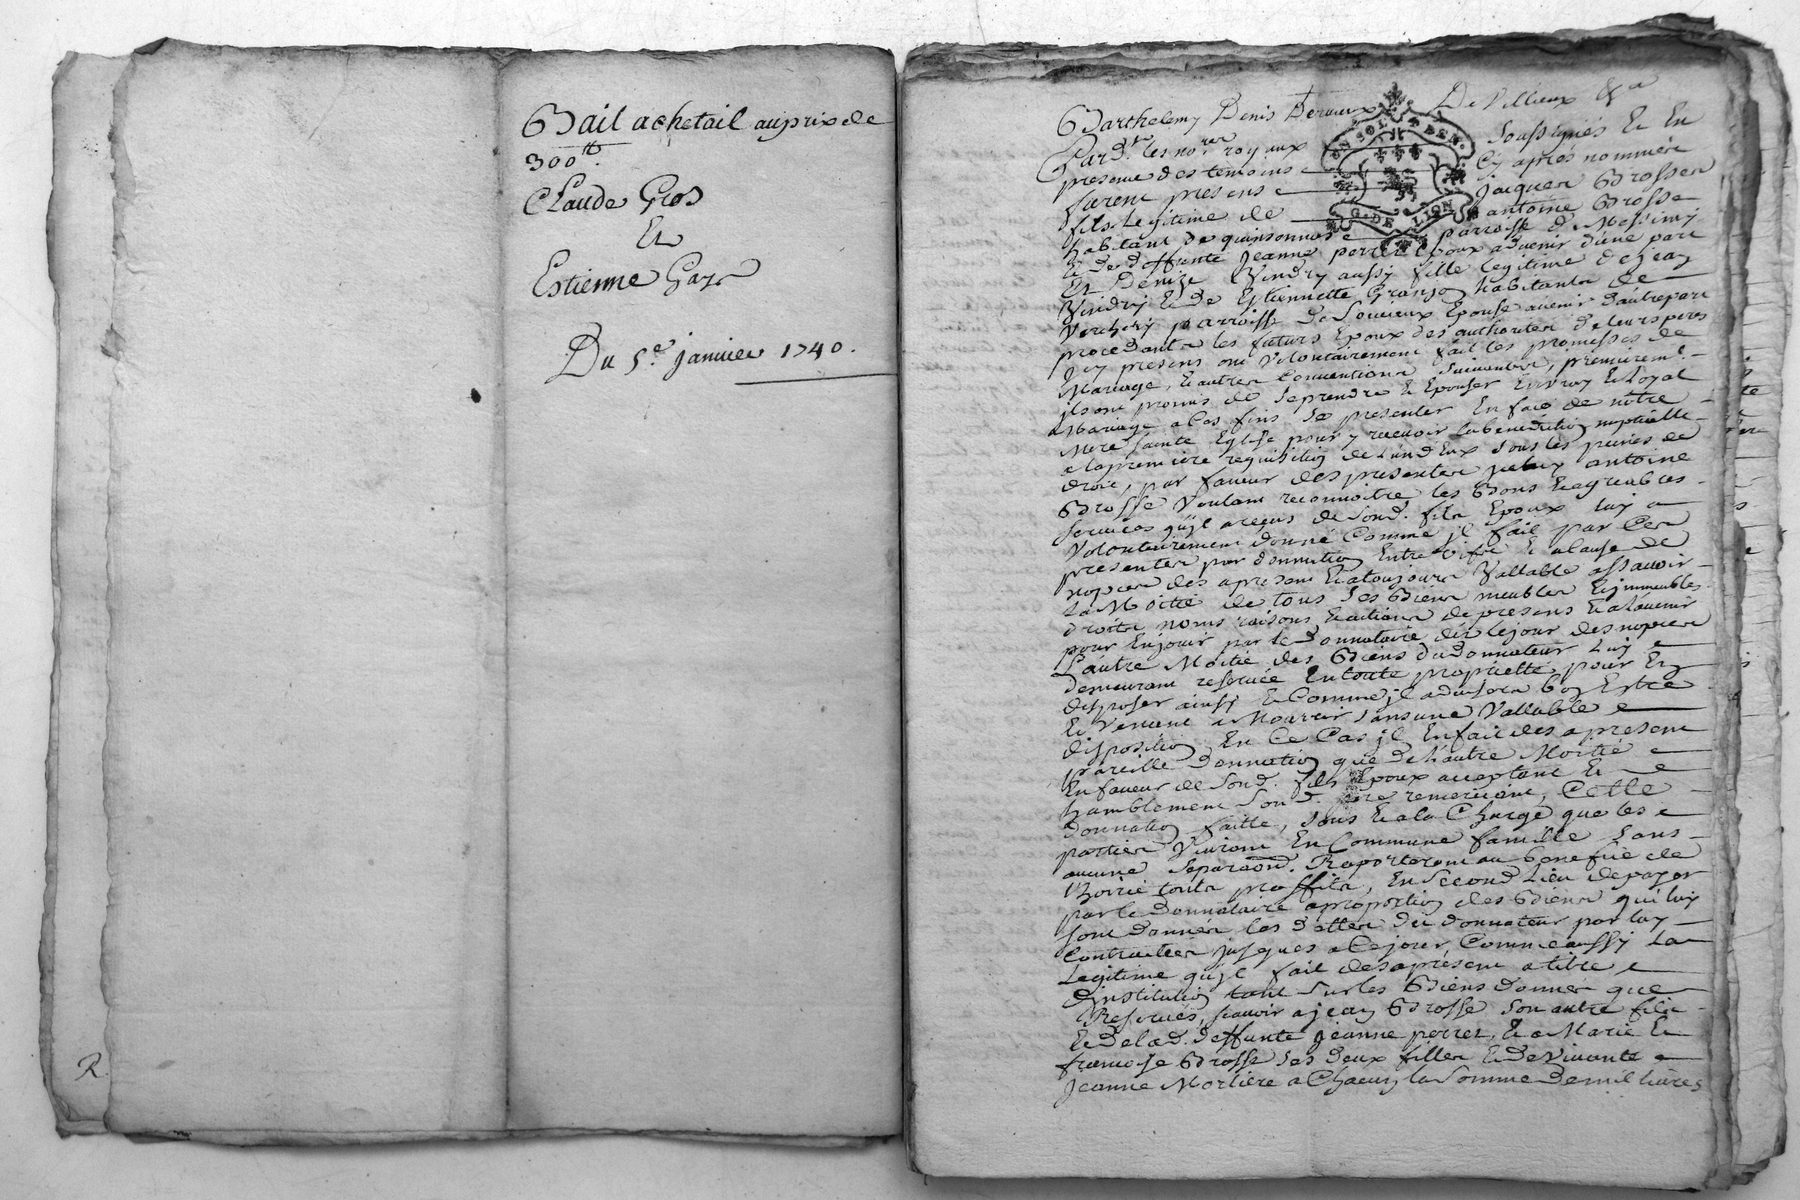 Bail a chetail au prix de
300tt.
Claude Gros
Et
Estienne Gay
Du 5e. janvier 1740.
R
Barthelemy Denis Devaux De Villieux &a
Pard.t les no.res royaux soussignés Et En
presence des temoins cy aprés nommés
furent presens jacques Brosse
fils Legitime de antoine Brosse
habitant de parroisse de Messimy
Et de deffunte jeanne perret Epoux advenir d'une part
Et Denize Vindry aussy fille legitime de jean
Vindry Et de Estiennette Granjon habitants de
Verchery parroisse de Soucieux Epouse avenir d'autre part
procedants les futurs Epoux des authorités de leurs peres
jcy presens ont Volontairement fait les promesses de
Mariage, Et autres Conventions Suivantes, premierem.t
jls ont promis de Se prendre Et Epouser En vray Et Loyal
Mariage a Ces fins Se presenter En face de nôtre
Mere Sainte Eglise pour y recevoir La benediction nuptialle
a la premiere requisition de L'un d'Eux sous les peines de
droit, par faveur des presentes jceluy antoine
Brosse Voulant reconnoitre les Bons Et agreables
services qu'jl a reçus de Sond. fils Epoux luy a
Volontairement donné Comme jl fait par Ces
presentes par donnation Entre vifs Et a Cause de
nopces des apresent Et a toujours Vallable assavoir
La Moitié de tous Ses Biens meubles Et jmmeubles
droits noms raisons Et actions de presens Et a l'avenir
pour En jouir par le donnataire dés le jour des nopces
L'autre Moitié des Biens du donnateur Luy
demeurant reservée En toute proprieté pour En
disposer ainsy Et Comme jl advisera bon Estre
Et Venant a Mourir sans une Vallable
disposition En Ce Cas jl En fait des apresent
pareille donnation que de l'autre Moitié
En faveur de Sond. fils Epoux acceptant Et
humblement Sond. pere remerciant, Cette
donnation faitte, sous Et a la Charge que les
parties Vivront En Commune famille Sans
aucune Separaôn. Raporteront au benefice de
L'hoirie touts proffits, En Second Lieu de payer
par le donnataire a proportion des Biens qui luy
sont donnés les dettes du donnateur par luy
Contractées jusques a Ce jour, Comme aussy La
Legitime qu'jl fait des aprésent a titre
d'institution tant sur les Biens donnés que
Reservés, scavoir a jean Brosse Son autre fils
Et de lad. deffunte jeanne perret, Et a Marie Et
françoise Brosse Ses deux filles Et de Vivante
Jeanne Mortiere a Chacun la Somme de mil livres